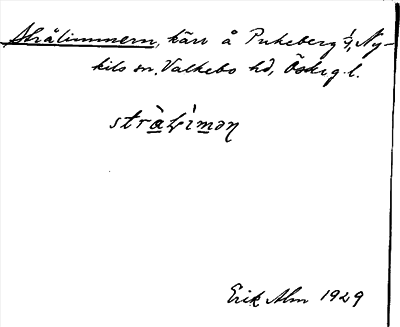 Strålimmern, kärr å Pukeberg 1/4, Ny-
kils sn. Valkebo hd, Östergl.
stràlìmən
Erik Alm 1929